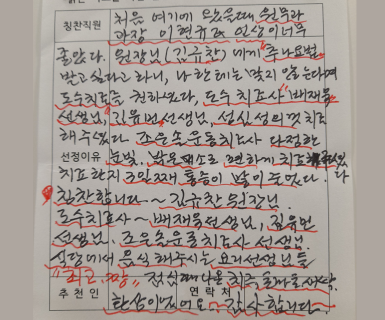 칭찬직원 처음 여기에 왔을때 원무과
과장 이현규 인상이너무
좋았다. 원장님(김규찬)에게 "추나요법"
받고싶다고 하니, 나한테는 맞지 않는다며
도수치료를 권하셨다, 도수치료사 배재욱
선생님, 김유민선생님, 성심성의껏 치료
해주셨다. 조은손운동치료사 다정한
선정이유 눈빛, 밝은 목소리로 편하게 치료
치료하지 3일째 통증이 많이 줄었다.
칭찬합니다 ~ 김규찬 원장님.
도수치료사~ 배재욱선생님, 김유민
선생님. 조은손운동치료사 선생님.
식당에서 음식 해주시는 요리선생님들
"최고 짱" 점심때 나온
추천인 연락처
환상이었어요~ 감사합니다.